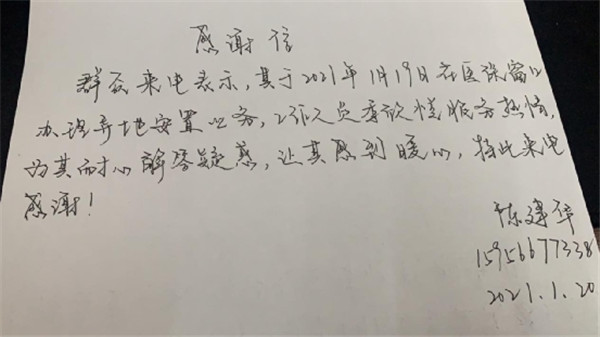 感谢信
群众来电表示,其于2021年1月19日在医保窗口
办理异地安置业务,工作人员李欣悦服务热情,
为其耐心解答疑惑,让其感到暖心,特此来电
感谢!
陈建华
15956677338
2021.1.20